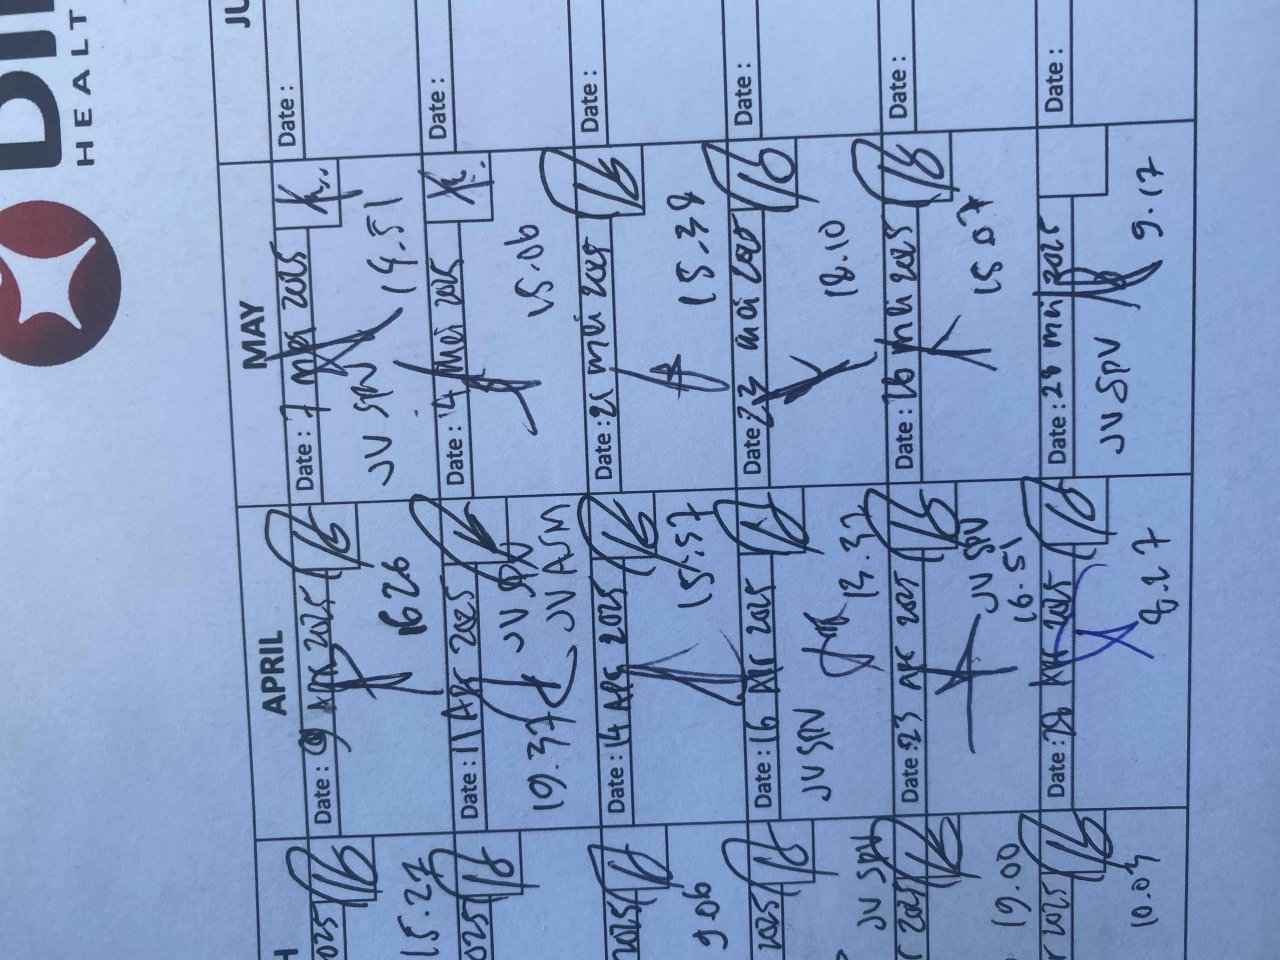 HEALT
H
APRIL
MAY
JU
025
Date : 9 Apr 2025
Date : 7 mei 2025
Date :
15.27
16 26
JV SPV
19.51
025
Date : 11 Apr 2025
Date : 14 Mei 2025
Date :
JV SPV
19.37
JV ASM
15.06
2025
Date : 14 Apr 2025
Date : 21 mei 2025
Date :
9.06
15.57
15.38
2025
Date : 16 Apr 2025
Date : 23 mei 2025
Date :
JV SPV
JV SPV
13.37
18.10
r 2025
Date : 23 Apr 2025
Date : 26 mei 2025
Date :
19.00
JV SPV
16.51
15.07
r 2025
Date : 28 Apr 2025
Date : 28 mei 2025
Date :
10.03
8.27
JV SPV
9.17